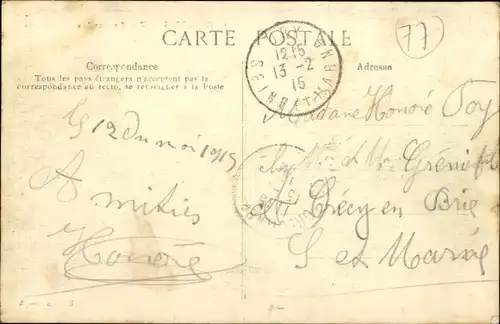 CARTE POSTALE
77
Correspondance
Tous les pays étrangers n'acceptent pas la
correspondance au recto, se renseigner à la Poste
Adresse
12.15
13-2
15
SEINE-ET-MARNE
12 1915
Amitiés
Honoré
Madame Honoré
chez Mme et Mr
à Crécy en Brie
S et Marne